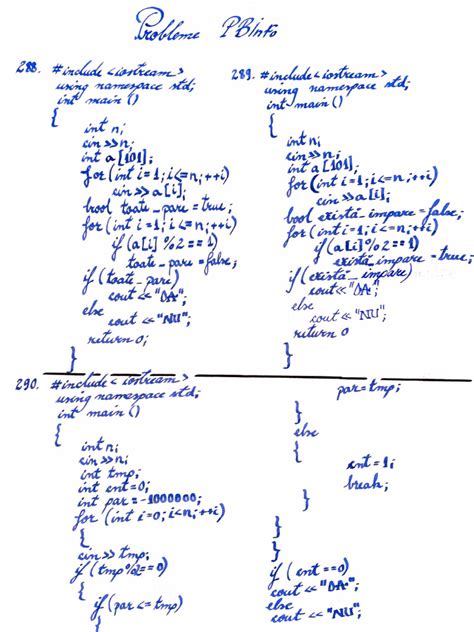 Probleme PBInfo
288. #include <iostream>
using namespace std;
int main ()
{
int n;
cin >> n;
int a [101];
for (int i=1; i<=n; ++i)
cin >> a[i];
bool toate_pare = true;
for (int i=1; i<=n; ++i)
if (a[i] %2 == 1)
toate_pare = false;
if (toate_pare)
cout << "DA";
else
cout << "NU";
return 0;
}
289. #include <iostream>
using namespace std;
int main ()
{
int n;
cin >> n;
int a [101];
for (int i=1; i<=n; ++i)
cin >> a[i];
bool există_impare = false;
for (int i=1; i<=n; ++i)
if (a[i] %2 == 1)
există_impare = true;
if (există_impare)
cout << "DA";
else
cout << "NU";
return 0
}
290. #include <iostream>
using namespace std;
int main ()
{
int n;
cin >> n;
int tmp;
int cnt=0;
int par = -1000000;
for (int i=0; i<n; ++i)
{
cin >> tmp;
if (tmp%2==0)
{
if (par <= tmp)
{
par=tmp;
}
else
{
cnt=1;
break;
}
}
}
if (cnt ==0)
cout << "DA";
else
cout << "NU";